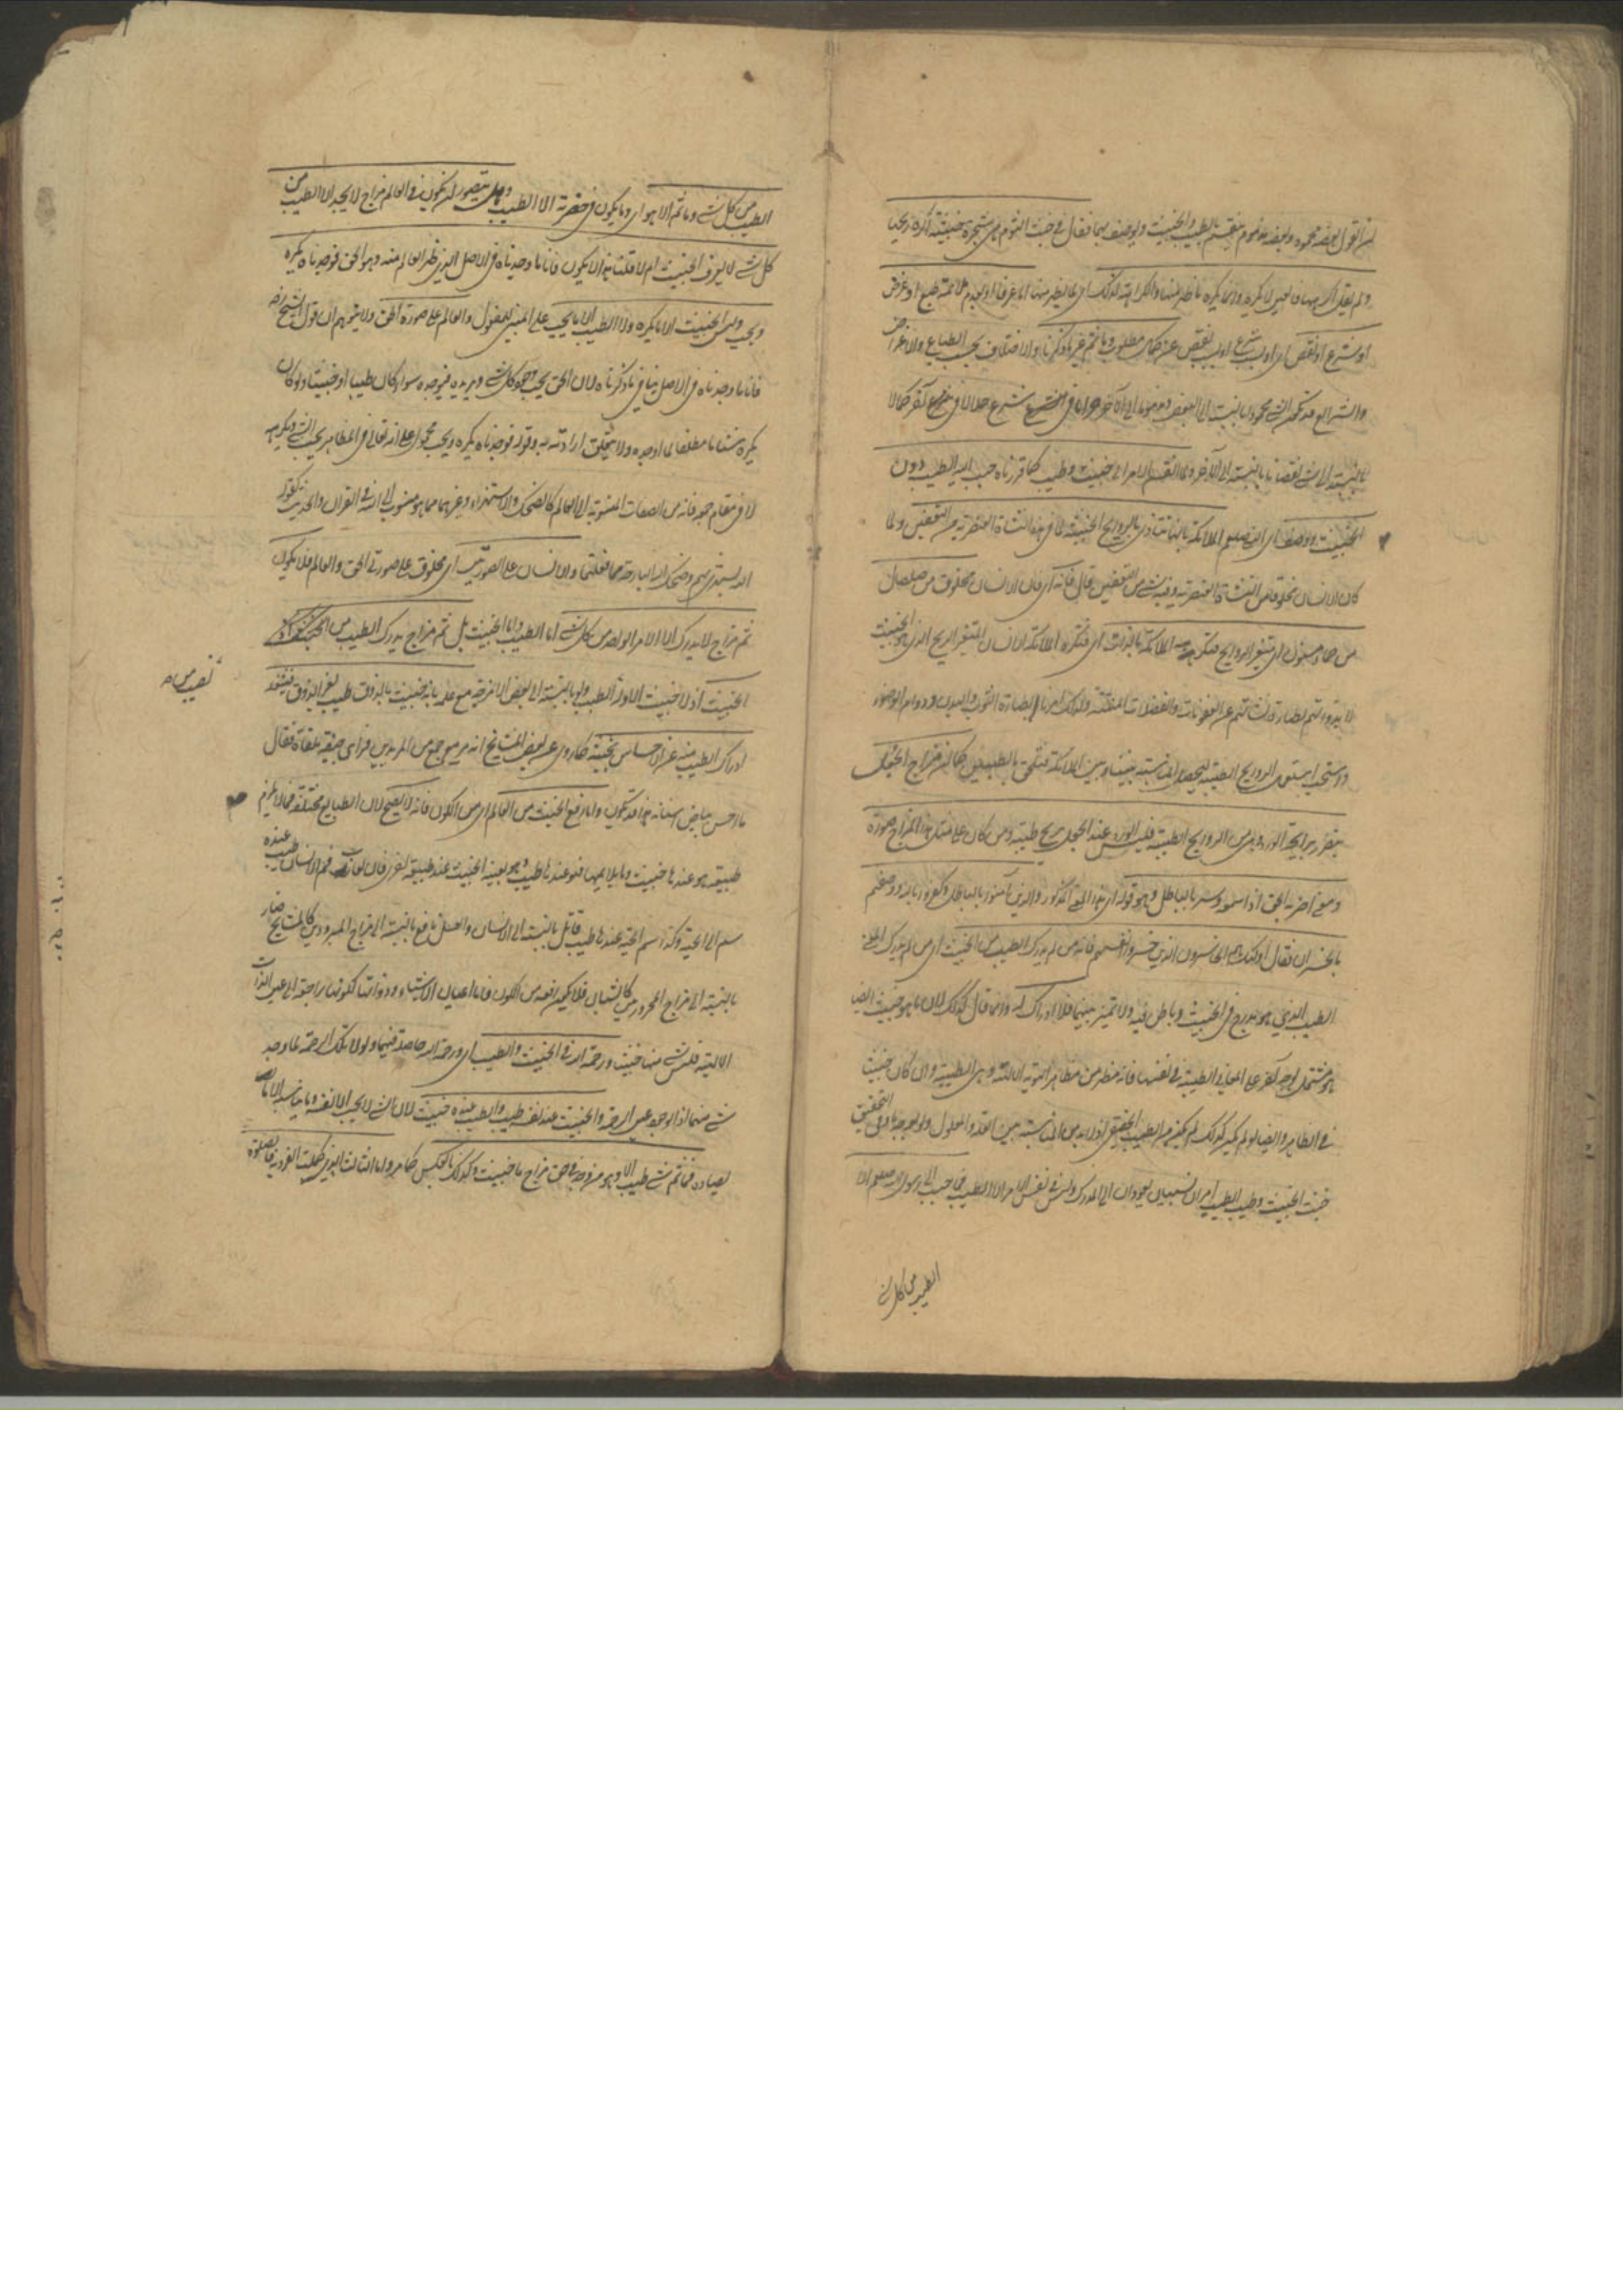 القول بعضه محمود وبعضه مذموم ينقسم بالطيب والخبيث ويوصف بهما فقال في خبث الثوم هي شجرة خبيثة اكره ريحها
ولم يقل اكرهها فالعين لا تكره وانما يكره ما ظهر منها والكراهة لذلك اي لما يظهر منها اما عرفا او لعدم ملائمة طبع او غرض
او شرع او نقص عن كمال مطلوب وما ثم غير ما ذكرناه والاختلاف بحسب الطبايع والاغراض
والشرايع قد يكون الشئ محمودا بالنسبة الى البعض ومذموما الى آخر حراما في شرع حلالا في شرع آخر كمالا
بالنسبة الى شئ نقصانا بالنسبة الى الآخر ولما انقسم الامر الى خبيث وطيب كما قررناه حبب اليه الطيب دون
الخبيث ووصف اي النبي صلعم الملائكة بانها تتاذى بالروايح الخبيثة لما في هذه النشاة العنصرية من التعفين ولما
كان الانسان مخلوقا من النشاة العنصرية وفيه شئ من التعفين قال فانه اي فان الانسان مخلوق من صلصال
من حماء مسنون اي متغير الروايح فتكرهه الملائكة بالذات اي فتكره الملائكة الانسان المتغير الريح الذي هو الخبيث
لطهارة نشاتهم عن العفونات والفضلات المنتنة ولذلك امرنا بطهارة الثوب والبدن ودوام الوضوء
واستحب استعمال الروايح الطيبة ليحصل المناسبة بيننا وبين الملائكة فنلحق بالطيبين كما ان مزاج الجعل
يتضرر برايحة الورد وهي من الروايح الطيبة فليس الورد عند الجعل بريح طيبة ومن كان على مثل هذا المزاج صورة
ومعنى اضر به الحق اذا سمعه وسر بالباطل وهو قوله اي هذا المعنى المذكور والذين آمنوا بالباطل وكفروا بالله ووصفهم
بالخسران فقال اولئك هم الخاسرون الذين خسروا انفسهم فانه من لم يدرك الطيب من الخبيث اي من لم يدرك المعنى
الطيب الذي هو مندرج في الخبيث وباطن فيه ولا تمييز بينهما فلا ادراك له وانما قال كذلك لان ما هو خبيث ايضا
هو مشتمل بوجه آخر على المعاني الطيبة في نفسها فانه مظهر من مظاهر الهوية الالهية وهي الطيبة وان كان خبيثا
في الظاهر وايضا لو لم يكن كذلك لم يكن من الطيب الحقيقي اذ لا بد من المناسبة بين العلة والمعلول ولو بوجه ما وفي التحقيق
خبث الخبيث وطيب الطيب امران نسبيان يعودان الى المدرك وليس في نفس الامر الا الطيب فما حبب الى رسول الله صلعم الا
الطيب من كل شئ
الطيب من كل شئ وما ثم الا هو اي وما يكون في حضرته الا الطيب وهل يتصور ان يكون في العالم مزاج لا يجد الا الطيب من
كل شئ لا يعرف الخبيث ام لا قلنا هذا لا يكون فانا ما وجدناه في الاصل الذي ظهر العالم منه وهو الحق فوجدناه يكره
ويحب وليس الخبيث الا ما يكره ولا الطيب الا ما يحب على المبني للمفعول والعالم على صورة الحق ولا يتوهم ان قول الشيخ رضه
فانا ما وجدناه في الاصل ينافي ما ذكرناه لان الحق يحب وجود كل شئ ويريده فيوجده سواء كان طيبا او خبيثا ولو كان
يكره شئا ما مطلقا لما اوجده ولا يتعلق ارادته به وقوله فوجدناه يكره ويحب محمول على انه تعالى في المظاهر يحب الشئ ويكرهه
لا في مقام جمعه فانه من الصفات المنسوبة الى العالم كالضحك والاستهزاء وغيرهما مما هو منسوب الى الله في القران والحديث كقوله
الله يستهزئ بهم وضحك الله البارحة مما فعلتما والانسان على الصورتين اي مخلوق على صورتي الحق والعالم فلا يكون
ثم مزاج لا يدرك الا الامر الواحد من كل شئ اما الطيب واما الخبيث بل ثم مزاج يدرك الطيب من الخبيث
الخبيث اذ لا خبيث الا وله الطيب ولو بالنسبة الى بعض الامزجة مع علمه بانه خبيث بالذوق طيب بغير الذوق فيشغله
ادراك الطيب منه عن الاحساس بخبثه كما روي عن بعض المشايخ انه مر مع جمع من المريدين فراى جيفة ملقاة فقال
ما احسن بياض اسنانه هذا قد يكون واما رفع الخبيث من العالم اي من الكون فانه لا يصح لان الطبايع مختلفة فما لا يلائم
طبيعة هو عندها خبيث وما يلايمها فهو عندها طيب وهو بعينه الخبيث عند طبيعة اخرى فان لعاب فم الانسان طيب عنده
سم الى الحية وكذا سم الحية عندها طيب قاتل بالنسبة الى الانسان والعسل نافع بالنسبة الى مزاج المبرودين كالمشايخ ضار
بالنسبة الى مزاج المحرورين كالشبان فلا يمكن رفعه من الكون واما اعيان الاشياء وذواتها لكونها راجعة الى عين الذات
الالهية فليس شئ منها خبيثا ورحمة الله في الخبيث والطيب اي ورحمة الله حاصلة فيهما ولولا تلك الرحمة لما وجد
شئ منهما اذ الوجود عين الرحمة والخبيث عند نفسه طيب والطيب عنده خبيث لان الشئ لا يحب الا نفسه وما يناسبه لا ما
يضاده فما ثم شئ طيب الا وهو من وجه في حق مزاج ما خبيث وكذلك بالعكس كما مر واما الثالث الذي كملت الفردية فالصلوة